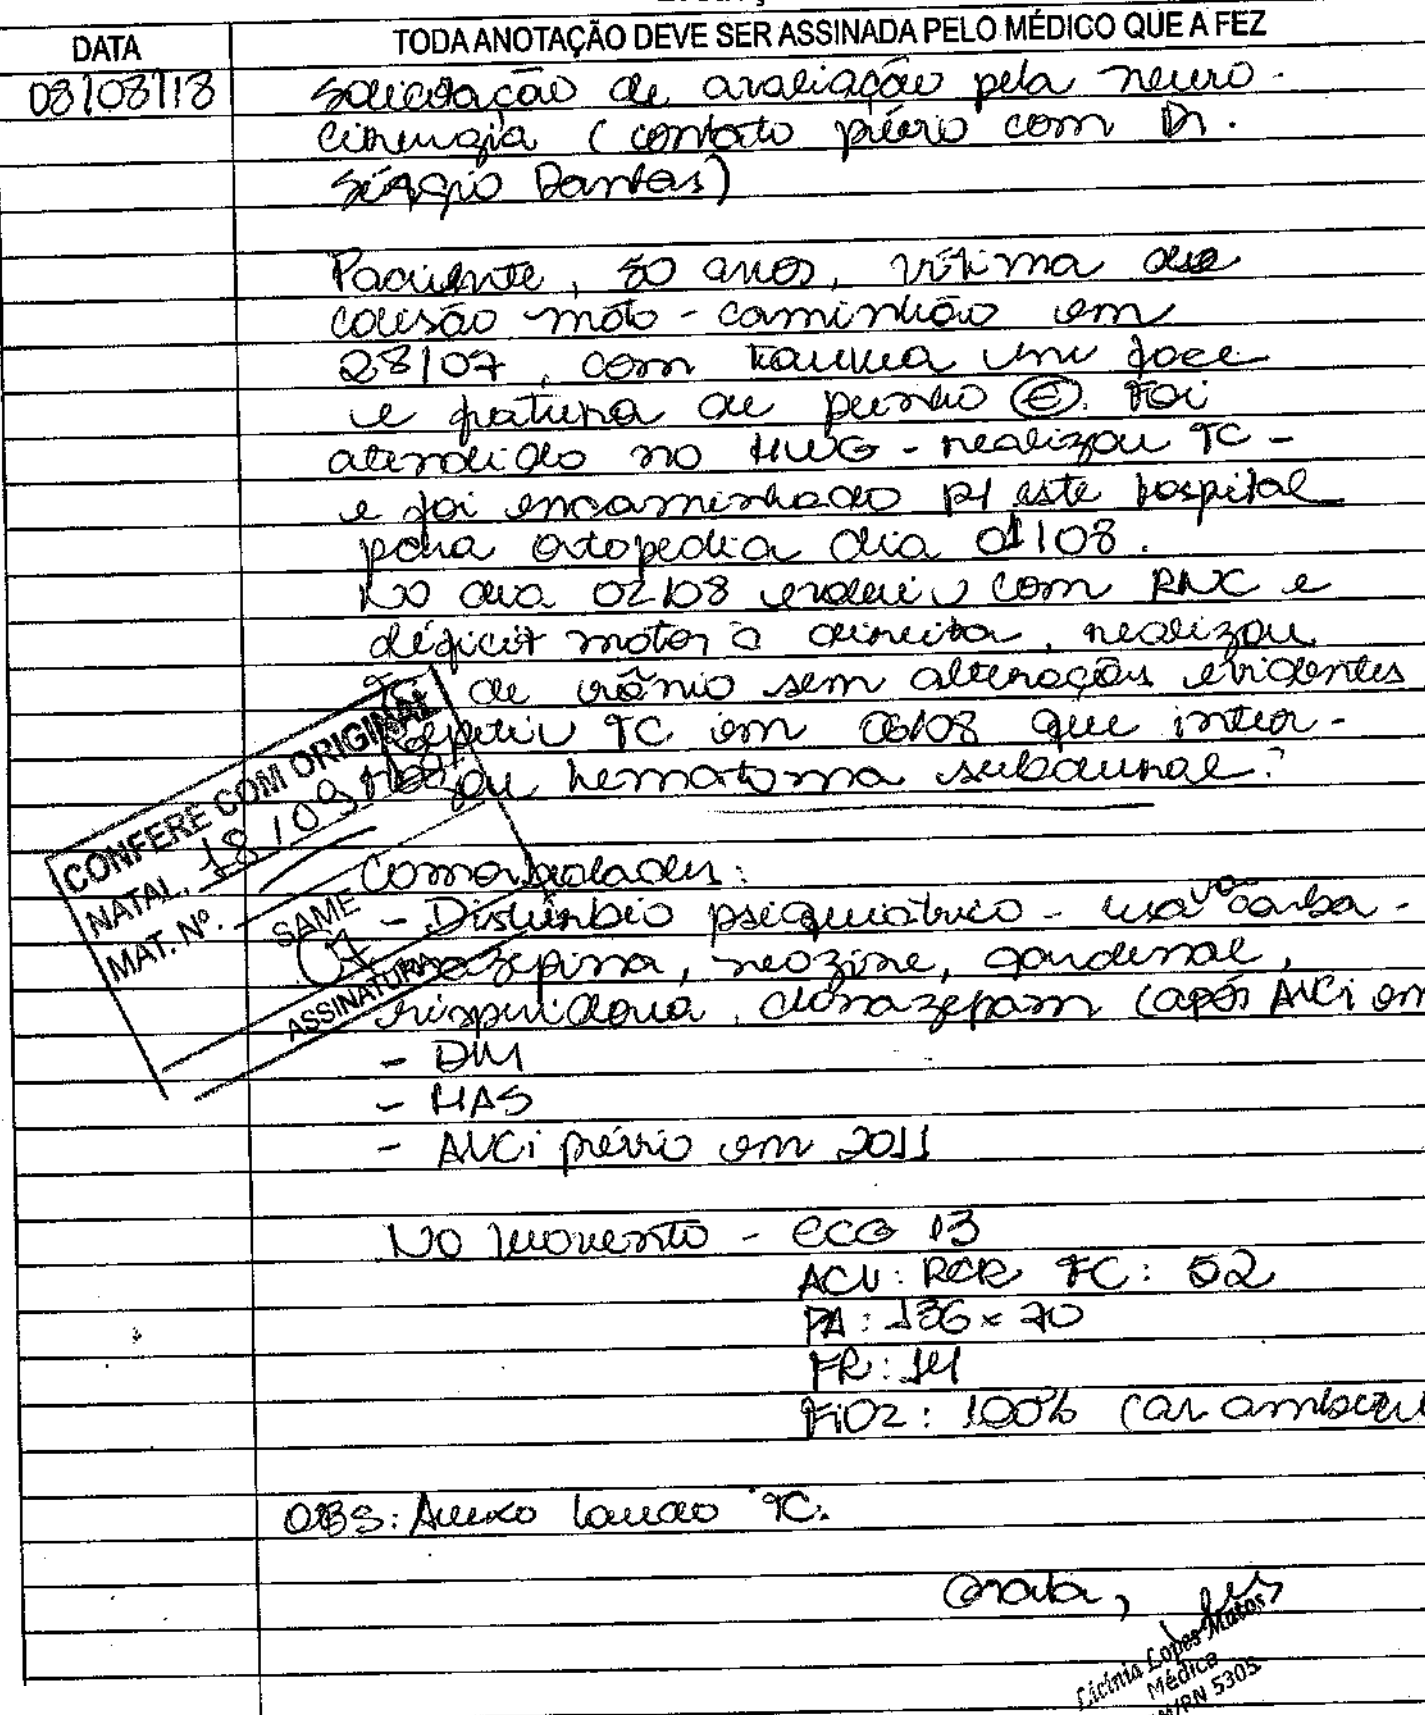 DATA
TODA ANOTAÇÃO DEVE SER ASSINADA PELO MÉDICO QUE A FEZ
08/08/18
Solicitação de avaliação pela neuro-
cirurgia (contato prévio com Dr.
Sérgio Dantas)
Paciente, 50 anos, vítima de
colisão moto-caminhão em
28/07, com trauma em face
e fratura de punho (E). Foi
atendido no HWG - realizou TC -
e foi encaminhado p/ este hospital
para ortopedia dia 01/08.
No dia 02/08 evoluiu com RNC e
déficit motor à direita, realizou
TC de crânio sem alterações evidentes
Repetiu TC em 06/08 que inter-
rogou hematoma subdural?
Comorbidades:
- Distúrbio psiquiátrico - usava carba-
mazepina, neozine, gardenal,
risperidona, clonazepam (após AVCi em
- DM
- HAS
- AVCi prévio em 2011
No momento - ECG 13
ACV: RCR FC: 52
PA: 136 x 70
FR: 14
FiO2: 100% (ar ambiente
OBS: Anexo laudo TC.
Grata,
Licínia Lopes Matos
Médica
M/RN 5305
CONFERE COM ORIGINAL
NATAL, 18/09/18
MAT. Nº.
SAME
ASSINATURA